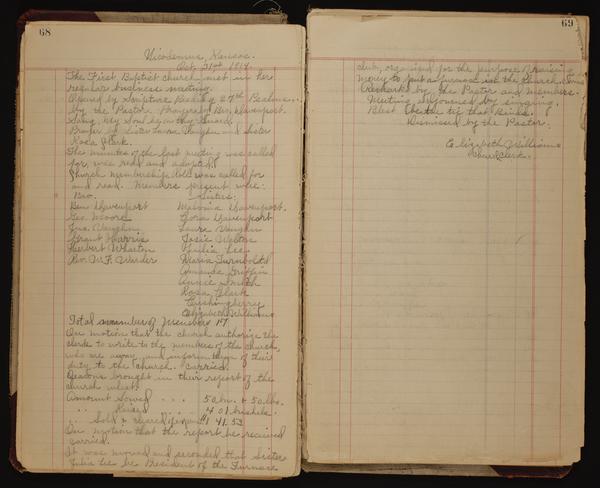 68
Nicodemus, Kansas.
Oct. 21st, 1917.
The First Baptist church met in her
regular business meeting.
Opened by Scripture Reading 27th Psalms.
by the Pastor. Prayer by Ben Davenport.
Song, My Soul be on thy Guard,
Prayer by Sister Laura Vaughn and Sister
Rosa Clark.
The minutes of the last meeting was called
for, was read and adopted.
Church membership Role was called for
and read. Members present were:
Bro. Sisters:
Ben Davenport Malvina Davenport.
Geo. Moore Flora Davenport
Jno. Vaughn Laura Vaughn
Grant Harris Josie Welton
Herbert Wharton Julia Lee
Rev. W.F. Warder Maria Turnbolt
Amanda Griffin
Annie Smith
Rosa Clark
Cushingberry
Elizabeth Williams
Total number of Members 17.
On motion that the church authorize the
clerk to write to the members of the church,
who are away, and inform them of their
duty to the church. Carried.
Deacons brought in their report of the
church wheat.
Amount Sowed . . . 5 bu. & 50 lbs.
" Raised . . . 401 bushels.
" Sold & cleared $141.53
On motion that the report be received
carried.
It was moved and seconded that Sister
Julia Lee be President of the Furnace
69
club, organized for the purpose of raising
money to put a furnace in the church. Carried
Remarks by the Pastor and members.
Meeting adjourned by singing.
Blest be the tie that Binds.
Dismissed by the Pastor.
Elizabeth Williams
Church Clerk.